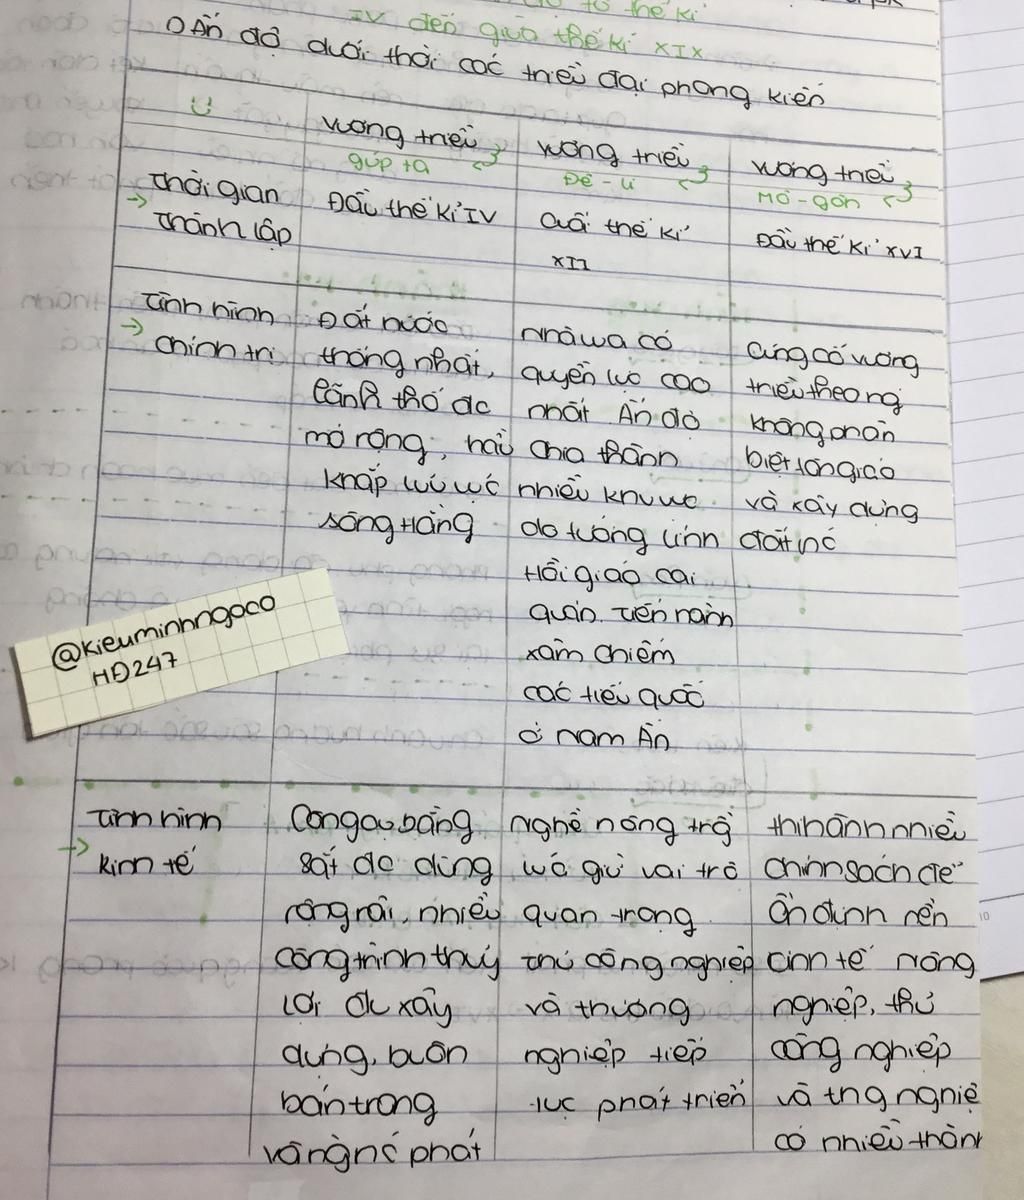 từ thế kỉ
IV đến giữa thế kỉ XIX
1) Ấn độ dưới thời các triều đại phong kiến
Vương triều
Gúp ta
Vương triều
Đê - li
Vương triều
Mô - gôn
→ Thời gian
thành lập
Đầu thế kỉ IV
Cuối thế kỉ
XII
Đầu thế kỉ XVI
→ Tình hình
chính trị
Đất nước
thống nhất,
lãnh thổ đc
mở rộng, hầu
khắp lưu vực
sông Hằng
nhà vua có
quyền lực cao
nhất Ấn độ
chia thành
nhiều khu vực
do tướng lĩnh
Hồi giáo cai
quản. Tiến hành
xâm chiếm
các tiểu quốc
ở Nam Ấn
Củng cố vương
triều theo ng
không phân
biệt tôn giáo
và xây dựng
đất nc
@kieuminhngoco
HĐ247
→ Tình hình
kinh tế
Công cụ bằng
sắt đc dùng
rộng rãi, nhiều
công trình thuỷ
lợi đc xây
dựng, buôn
bán trong
và ng nc phát
Nghề nông trồ
lúa giữ vai trò
quan trọng.
thủ công nghiệp
và thương
nghiệp tiếp
tục phát triển
thi hành nhiều
chính sách để
ổn định nền
kinh tế nông
nghiệp, thủ
công nghiệp
và tng nghiệ
có nhiều thành
10